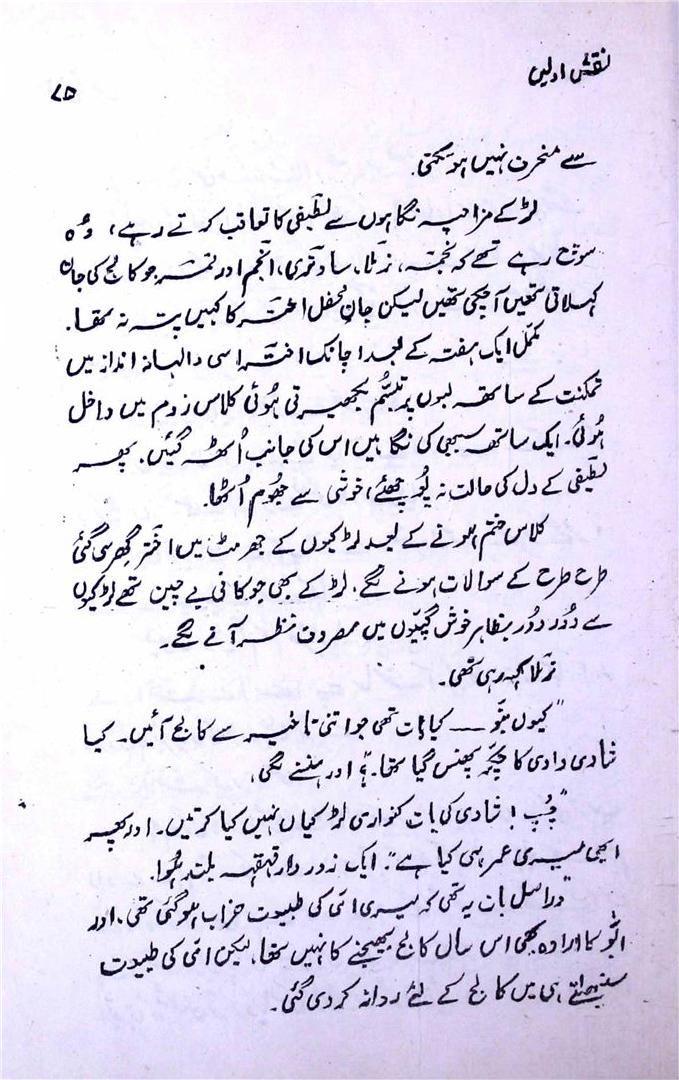 نقش اولیں
۷۵
سے منحرف نہیں ہو سکتی۔
لڑکے مزاحیہ نگاہوں سے لطیفی کا تعاقب کرتے رہے، وہ
سوچ رہے تھے کہ نجمہ، نرملا، ساوتری، انجم اور ثمر جو کالج کی جان
کہلاتی تھیں آ چکی تھیں لیکن جانِ محفل اختر کا کہیں پتہ نہ تھا۔
مکمل ایک ہفتہ کے بعد اچانک اختر اسی والہانہ انداز میں
تمکنت کے ساتھ لبوں پر تبسُّم بکھیرتی ہُوئی کلاس رُوم میں داخل
ہُوئی۔ ایک ساتھ سبھی کی نگاہیں اس کی جانب اُٹھ گئیں۔ پھر
لطیفی کے دل کی حالت نہ پُوچھئے، خوشی سے جھُوم اُٹھا۔
کلاس ختم ہونے کے بعد لڑکیوں کے جھرمٹ میں اختر گھِر سی گئی
طرح طرح کے سوالات ہونے لگے، لڑکے بھی جو کافی بے چین تھے لڑکیوں
سے دُور دُور بظاہر خوش گپیّوں میں مصروف نظر آنے لگے۔
نرملا کہہ رہی تھی۔
"کیوں بنّو ــــ کیا بات تھی جو اتنی تاخیر سے کالج آئیں۔ کیا
شادی وادی کا چکّر پھنس گیا تھا۔؟" اور ہنسنے لگی،
"چُپ! شادی کی بات کنواری لڑکیاں نہیں کیا کرتیں۔ اور پھر
ابھی میری عمر ہی کیا ہے"۔ ایک زور دار قہقہہ بلند ہُوا۔
"دراصل بات یہ تھی کہ میری امّی کی طبیعت خراب ہو گئی تھی، اور
ابّو کا ارادہ بھی اس سال کالج بھیجنے کا نہیں تھا، لیکن امّی کی طبیعت
سنبھلتے ہی میں کالج کے لئے روانہ کر دی گئی۔